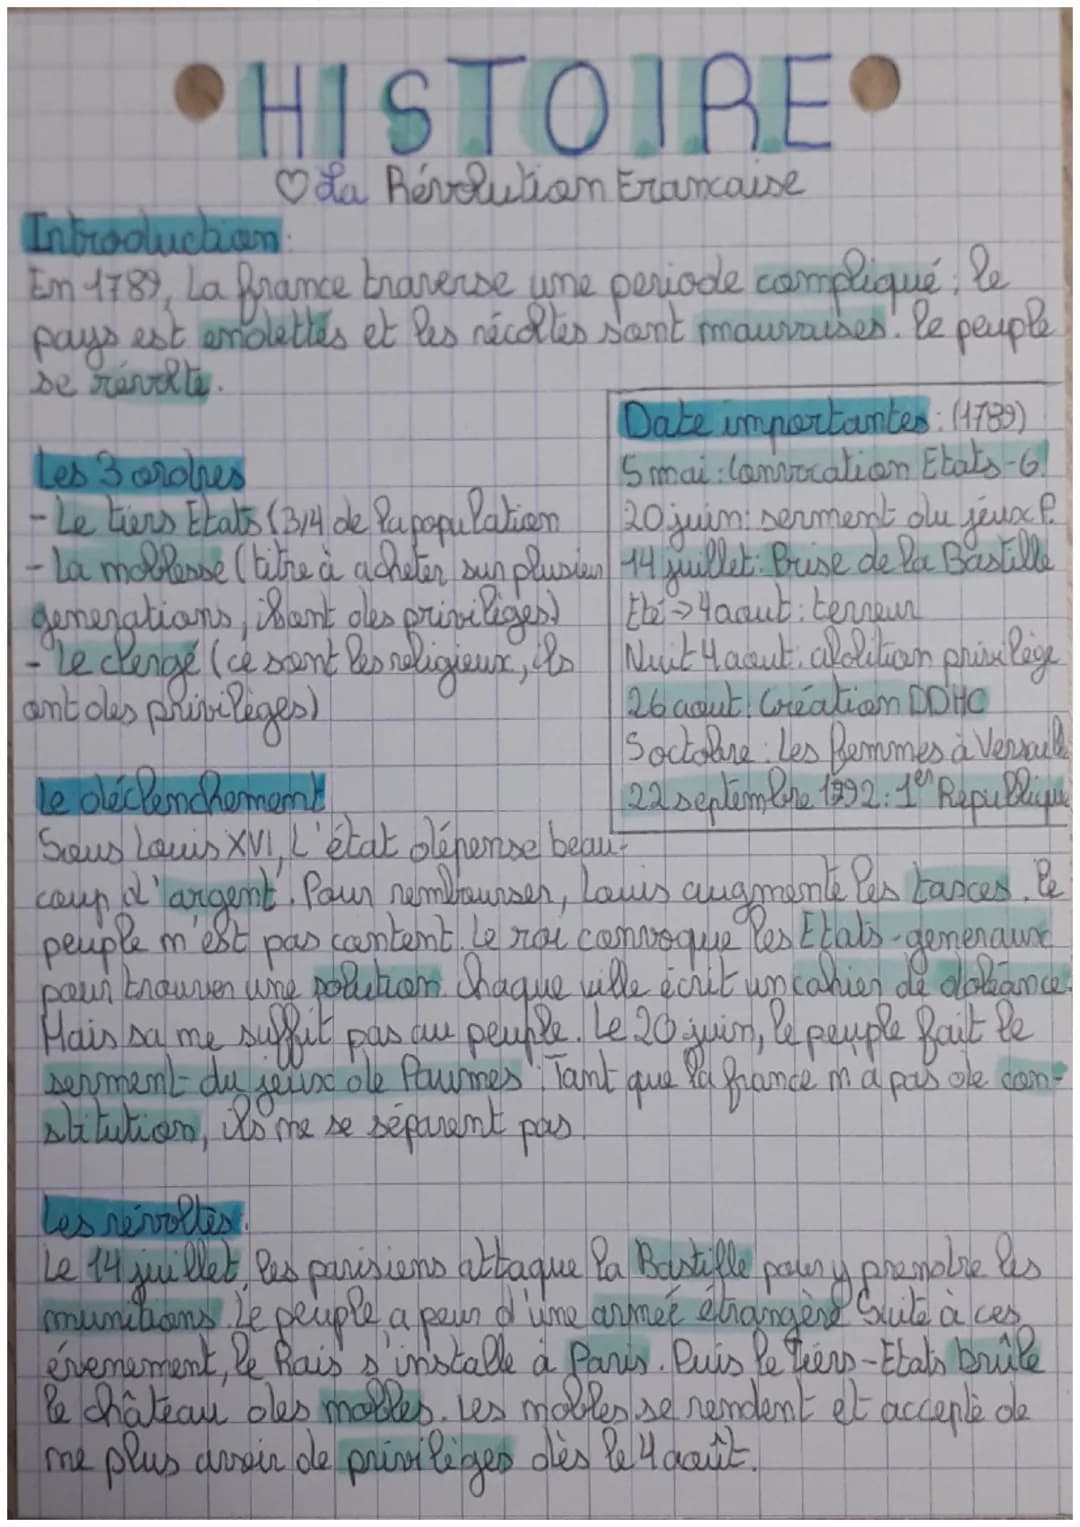 HISTOIRE
♡ La Révolution Francaise
Introduction:
En 1789, La france traverse une periode compliqué; le
pays est endettés et les récoltes sont mauvaises. le peuple
se révolte.
Les 3 ordres
- Le tiers Etats (3/4 de la population
- La noblesse (titre à acheter sur plusieu
generations, ils ont des privilièges)
- Le clergé (ce sont les religieux, ils
ont des privilèges)
Date importantes: (1789)
5 mai: Convocation Etats-G
20 juin: serment du jeux P.
14 juillet: Prise de la Bastille
Eté → 4 aout: terreur
Nuit 4 aout: abolition privilège
26 aout: Création DDHC
5 octobre: Les femmes à Versaill
22 septembre 1792: 1er République
Le déclenchement
Sous Louis XVI, L'état dépense beau-
coup d'argent. Pour rembourser, Louis augmente les taxces. Le
peuple n'est pas content. Le roi convoque les Etats-generaux
pour trouver une solution. Chaque ville écrit un cahier de doléance.
Mais sa ne suffit pas au peuple. Le 20 juin, le peuple fait le
serment du jeux de Paumes: Tant que la france n'a pas de con-
stitution, ils ne se séparent pas
Les révoltes.
Le 14 juillet, les parisiens attaque la Bastille pour y prendre les
munitions. Le peuple a peur d'une armée étrangère. Suite à ces
évenement, le Rois s'installe à Paris. Puis le Tiers-Etats brûle
le château des nobles. Les nobles se rendent et accepte de
ne plus avoir de privilèges dès le 4 août.